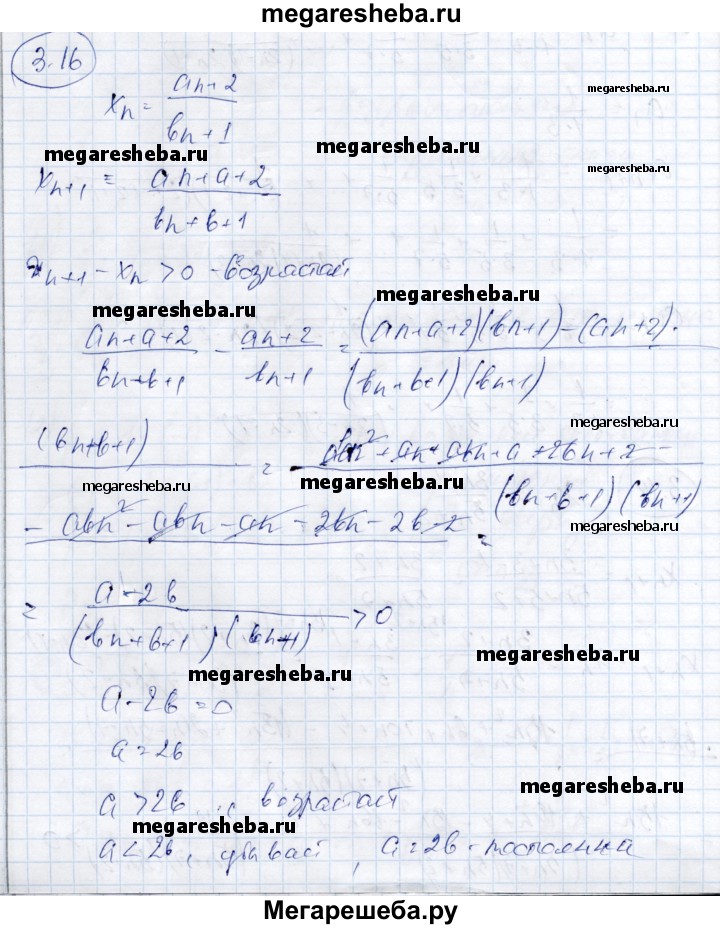 megaresheba.ru
3.16
xₙ = (an+2)/(bn+1)
megaresheba.ru
megaresheba.ru
megaresheba.ru
xₙ₊₁ = (an+a+2)/(bn+b+1)
megaresheba.ru
xₙ₊₁ − xₙ > 0 - возрастает
megaresheba.ru
megaresheba.ru
(an+a+2)/(bn+b+1) − (an+2)/(bn+1) = (an+a+2)(bn+1) − (an+2)· / (bn+b+1)(bn+1)
(bn+b+1) = abn² + an + abn + a + 2bn + 2 −
megaresheba.ru
megaresheba.ru
megaresheba.ru
− abn² − abn − an − 2bn − 2b − 2 / (bn+b+1)(bn+1) =
megaresheba.ru
= (a−2b)/((bn+b+1)(bn+1)) > 0
megaresheba.ru
megaresheba.ru
a − 2b = 0
megaresheba.ru
a = 2b
megaresheba.ru
a > 2b, возрастает
megaresheba.ru
a < 2b, убывает, a = 2b - постоянна
Мегарешеба.ру